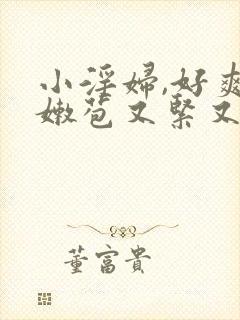 小淫婦,好爽
嫩苞又緊又
董富貴